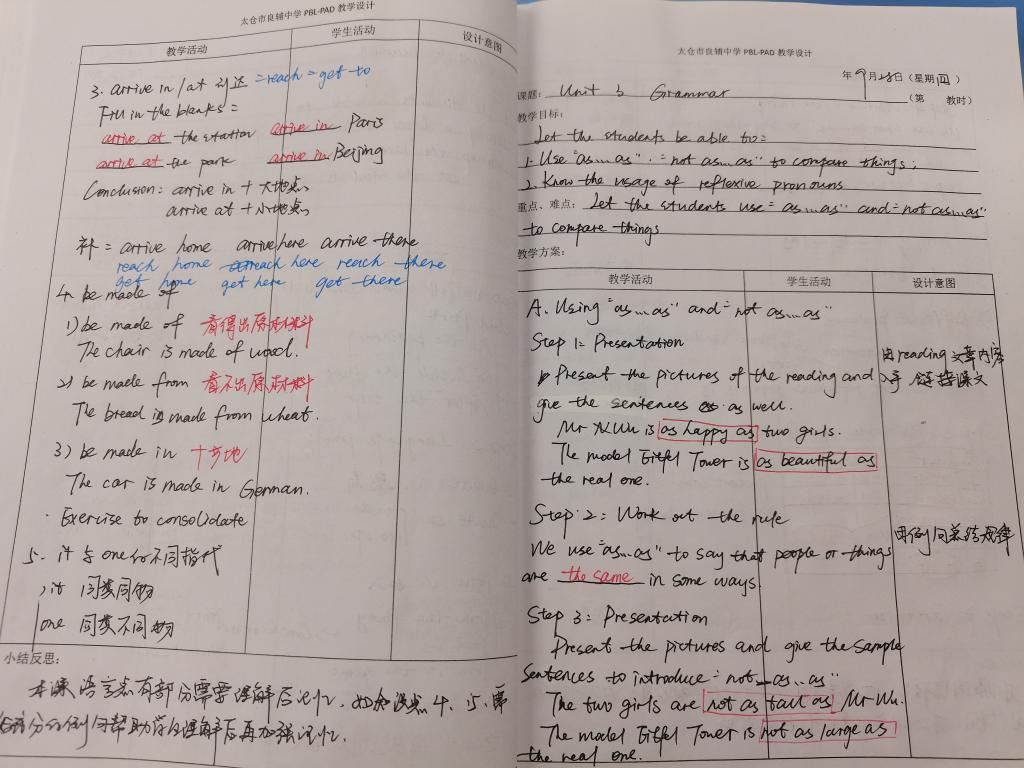 太仓市良辅中学 PBL-PAD 教学设计
教学活动 学生活动 设计意图
3. arrive in / at 到达 = reach = get to
Fill in the blanks:
arrive at the station arrive in Paris
arrive at the park arrive in Beijing
Conclusion: arrive in + 大地点
arrive at + 小地点
补: arrive home arrive here arrive there
reach home reach here reach there
get home get here get there
4. be made of
1) be made of 看得出原材料
The chair is made of wood.
2) be made from 看不出原材料
The bread is made from wheat.
3) be made in 十地
The car is made in German.
· Exercise to consolidate
5. it 与 one 的不同指代
it 同类同物
one 同类不同物
小结反思:
本课语言点有部分需要理解后记忆,如知识点4、5,
部分的例句帮助学生理解后再加强记忆.
太仓市良辅中学 PBL-PAD 教学设计
年 9月28日(星期四)
课题: Unit 3 Grammar (第 教时)
教学目标:
Let the students be able to:
1. Use "as...as" "not as...as" to compare things;
2. Know the usage of reflexive pronouns
重点、难点: Let the students use "as...as" and "not as...as"
to compare things
教学方案:
教学活动 学生活动 设计意图
A. Using "as...as" and "not as...as"
Step 1: Presentation
Present the pictures of the reading and
give the sentences as well.
Mr Wu is as happy as two girls.
The model Eiffel Tower is as beautiful as
the real one.
由reading文章内容
导入链接课文
Step 2: Work out the rule
We use "as...as" to say that people or things
are the same in some ways.
用例句总结规律
Step 3: Presentation
Present the pictures and give the sample
sentences to introduce "not as...as"
The two girls are not as tall as Mr Wu.
The model Eiffel Tower is not as large as
the real one.